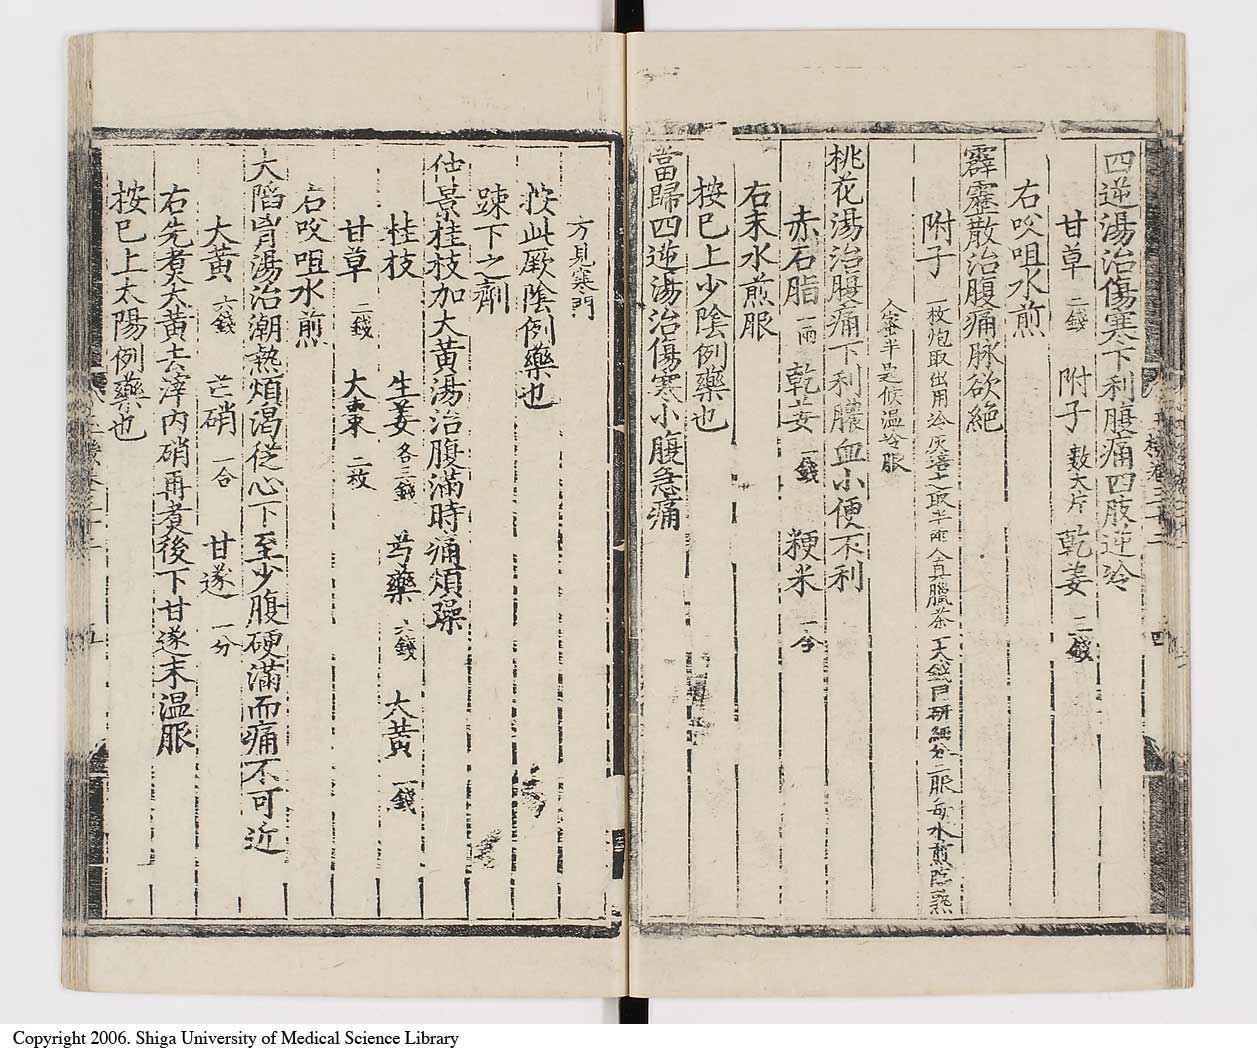 四逆湯治傷寒下利腹痛四肢逆冷
甘草 二錢 附子 數大片 乾姜 二錢
右㕮咀水煎
霹靂散治腹痛脉欲絶
附子 一枚炮取出用冷灰培之取半兩入真臘茶一大錢同研細分二服每水煎臨熟
入蜜半匙候温冷服
桃花湯治腹痛下利膿血小便不利
赤石脂 一兩 乾姜 一錢 粳米 一合
右末水煎服
按已上少陰例藥也
當歸四逆湯治傷寒小腹急痛
方見寒門
按此厥陰例藥也
踈下之劑
仲景桂枝加大黃湯治腹滿時痛煩躁
桂枝 生姜 各三錢 芍藥 六錢 大黃 一錢
甘草 二錢 大棗 二枚
右㕮咀水煎
大陷胷湯治潮熱煩渴從心下至少腹硬滿而痛不可近
大黃 六錢 芒硝 一合 甘遂 一分
右先煮大黃去滓內硝再煮後下甘遂末温服
按已上太陽例藥也
五
Copyright 2006. Shiga University of Medical Science Library